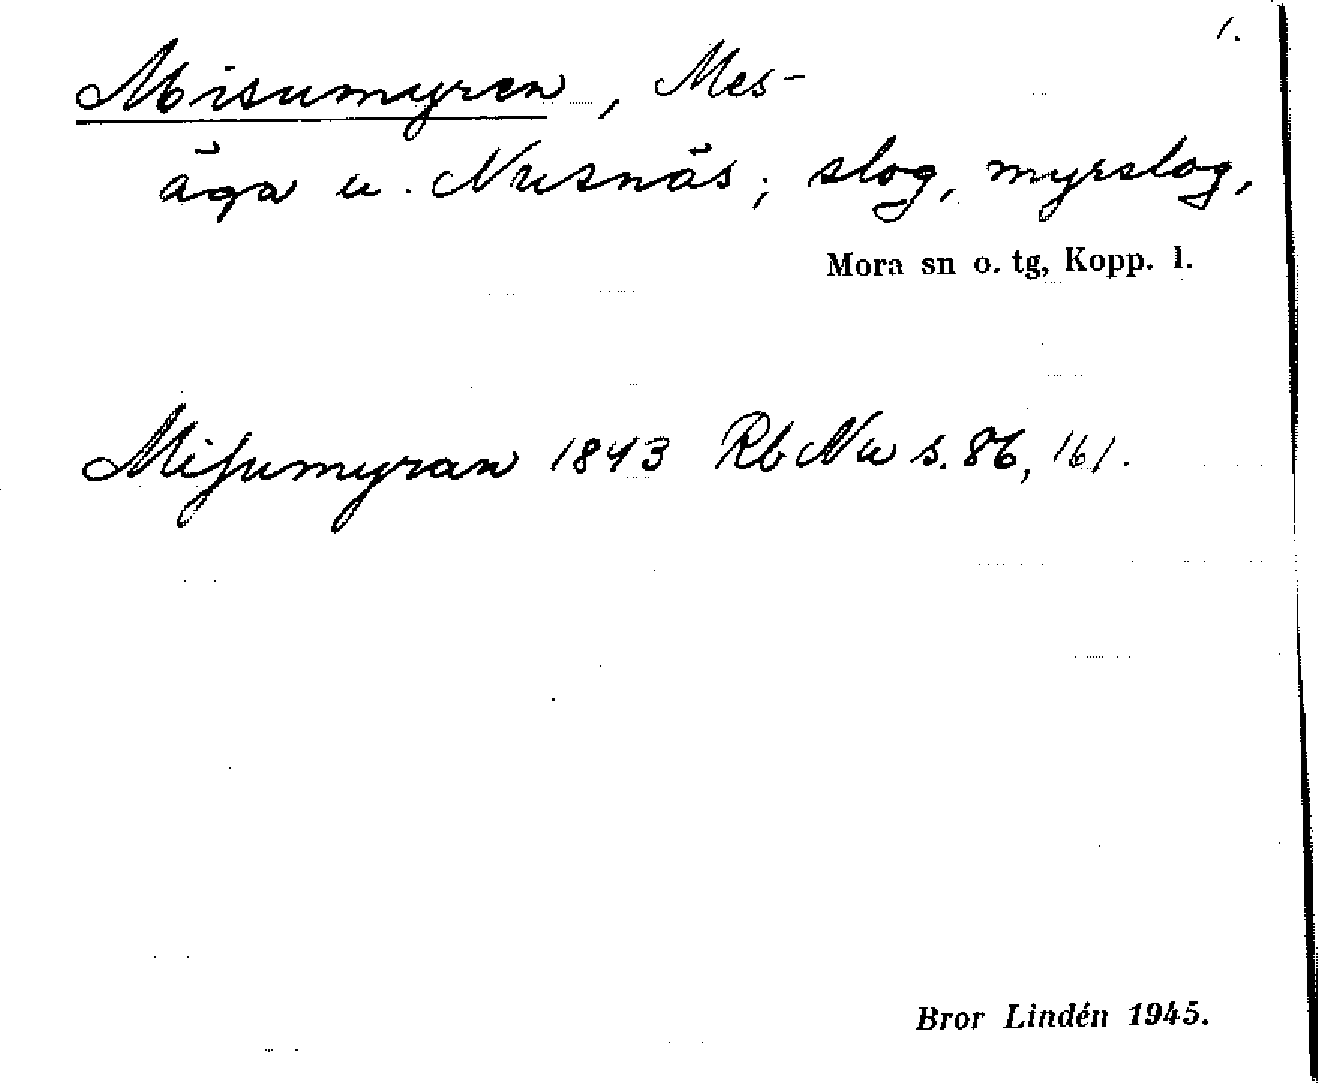 1.
Misumyren, Mes-
äga u. Nusnäs; slog, myrslog,
Mora sn o. tg, Kopp. l.
Miſumyran 1843 Rb Nu s. 86, 161.
Bror Lindén 1945.